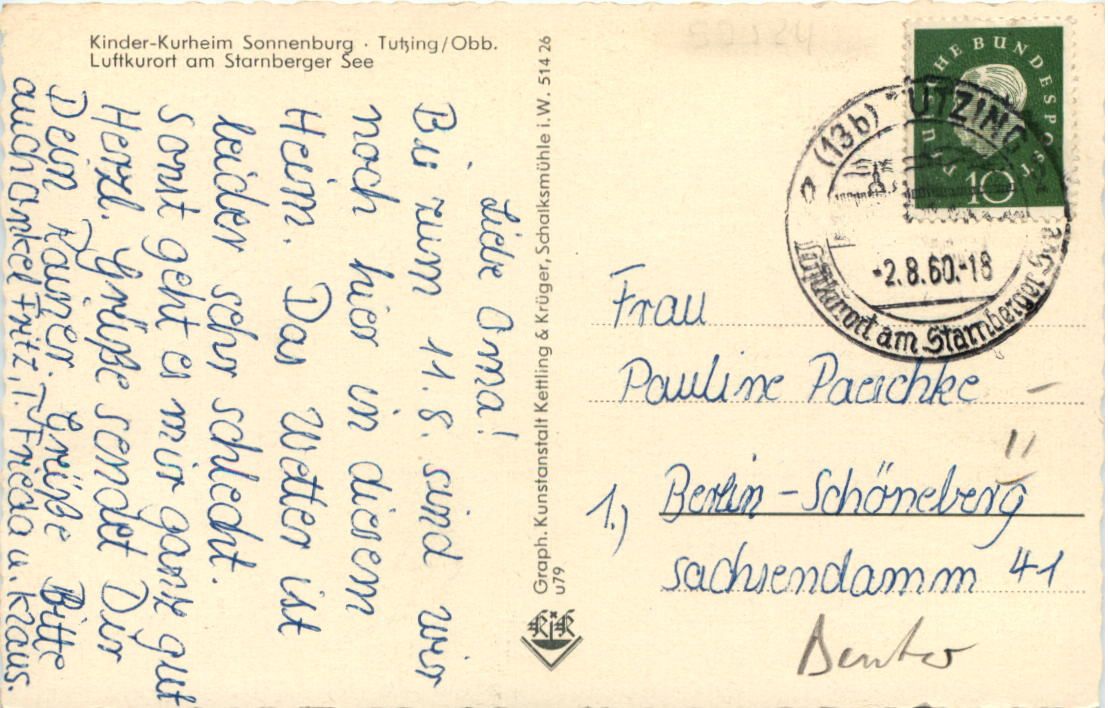 Kinder-Kurheim Sonnenburg · Tutzing/Obb.
Luftkurort am Starnberger See
Liebe Oma!
Bis zum 11.8. sind wir
noch hier in diesem
Heim. Das Wetter ist
leider sehr schlecht.
Sonst geht es mir ganz gut
Herzl. Grüße sendet Dir
Dein Rainer. Grüße Bitte
auch onkel Fritz, T. Frieda u. Klaus.
Graph. Kunstanstalt Kettling & Krüger, Schalksmühle i.W. 514 26
u79
K&K
DEUTSCHE BUNDESPOST
10
(13b) TUTZING
-2.8.60.-18
Luftkurort am Starnberger See
Frau
Pauline Paeschke
1.) Berlin-Schöneberg
Sachsendamm 41